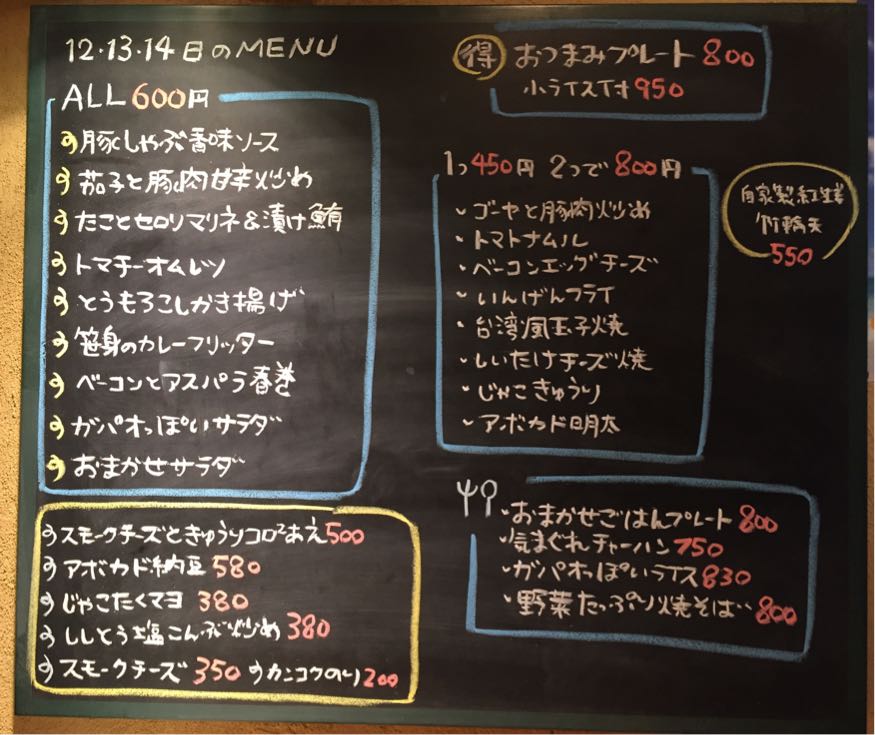 12・13・14日のMENU
ALL 600円
豚しゃぶ香味ソース
茄子と豚肉甘辛炒め
たことセロリマリネ&漬け鮪
トマチーオムレツ
とうもろこしかき揚げ
笹身のカレーフリッター
ベーコンとアスパラ春巻
ガパオっぽいサラダ
おまかせサラダ
スモークチーズときゅうりコロコロあえ500
アボカド納豆 580
じゃこたくマヨ 380
ししとう塩こんぶ炒め 380
スモークチーズ 350 カンコクのり 200
得 おつまみプレート 800
小ライス付 950
1つ450円 2つで800円
ゴーヤと豚肉炒め
トマトナムル
ベーコンエッグチーズ
いんげんフライ
台湾風玉子焼
しいたけチーズ焼
じゃこきゅうり
アボカド明太
自家製紅生
竹輪天
550
おまかせごはんプレート 800
気まぐれチャーハン 750
ガパオっぽいライス 830
野菜たっぷり焼そば 800